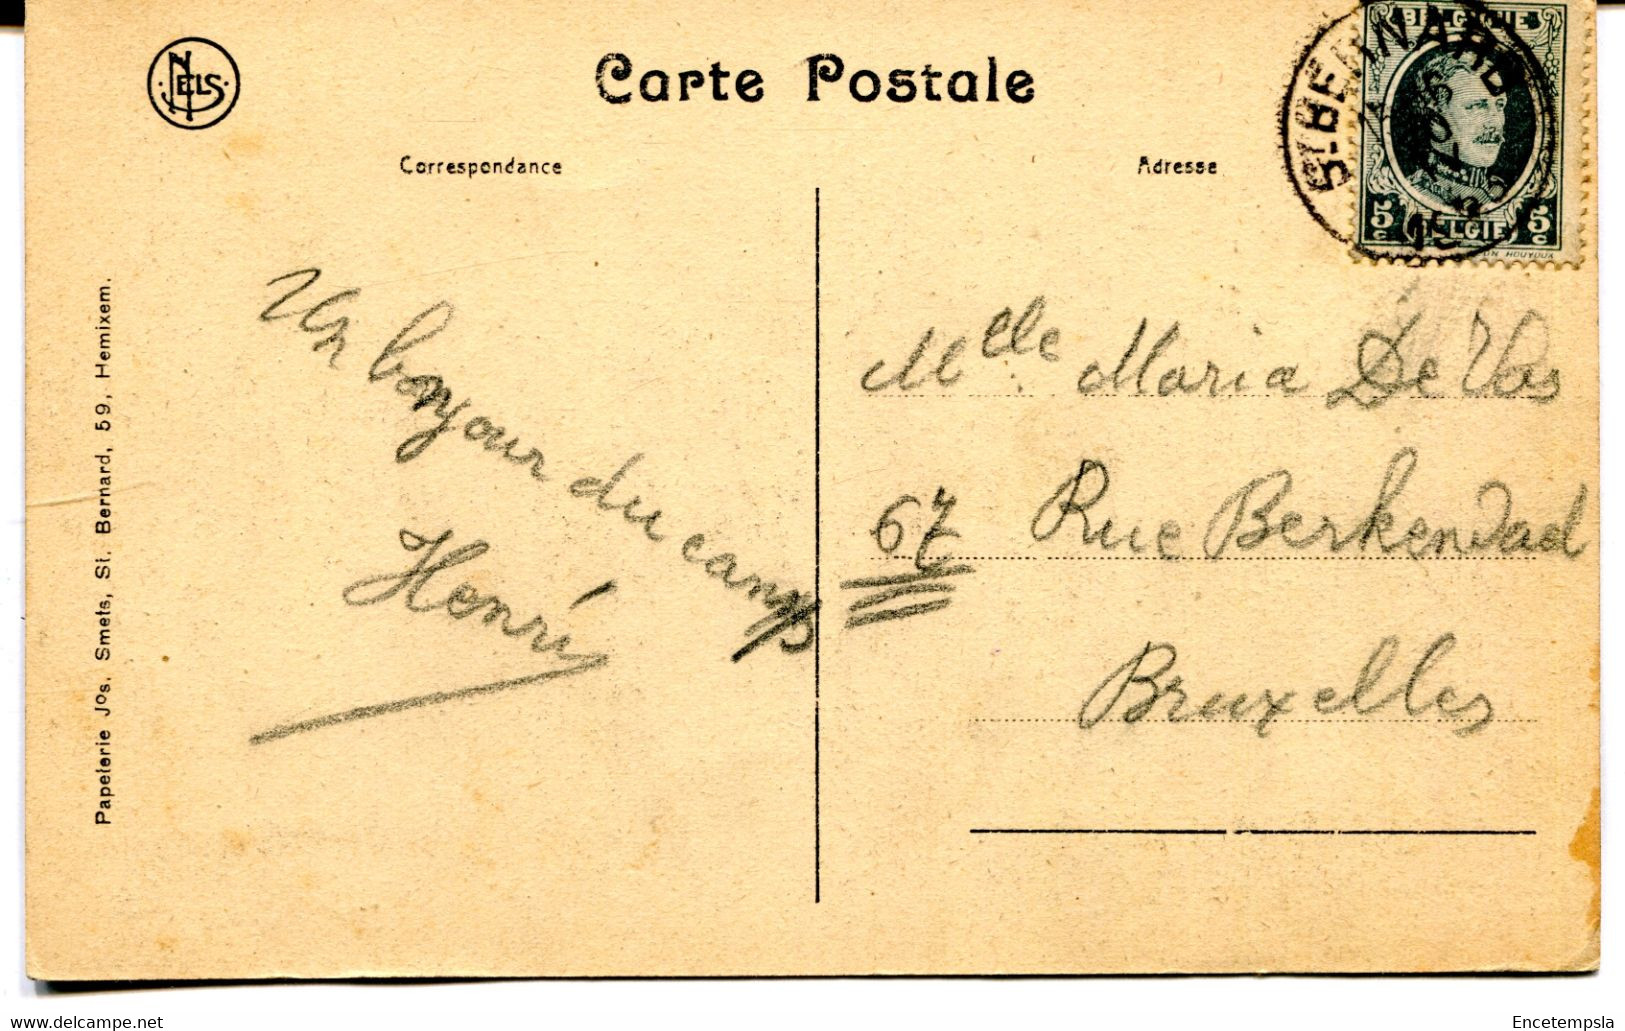 NELS
Carte Postale
Correspondance
Adresse
ST-BERNARD
BELGIQUE
5c BELGIE 5c
Papeterie Jos. Smets, St. Bernard, 59, Hemixem.
Un bonjour du camp
Henri
Mlle Maria De Vos
67 Rue Berkendael
Bruxelles
www.delcampe.net
Encetempsla